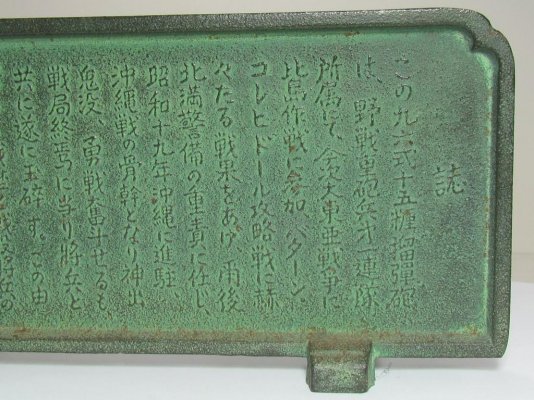 誌
この九六式十五糎榴弾砲
は、野戦重砲兵才一連隊
所属にて、今次大東亜戦争に
比島作戦に参加、バターン、
コレヒドール攻略戦に赫
々たる戦果をあげ、雨後
北満警備の重責に任じ、
昭和十九年沖縄に進駐、
沖縄戦の骨幹となり神出
鬼没、勇戦奮斗せるも、
戦局終焉に当り将兵と
共に遂に玉砕す。この由